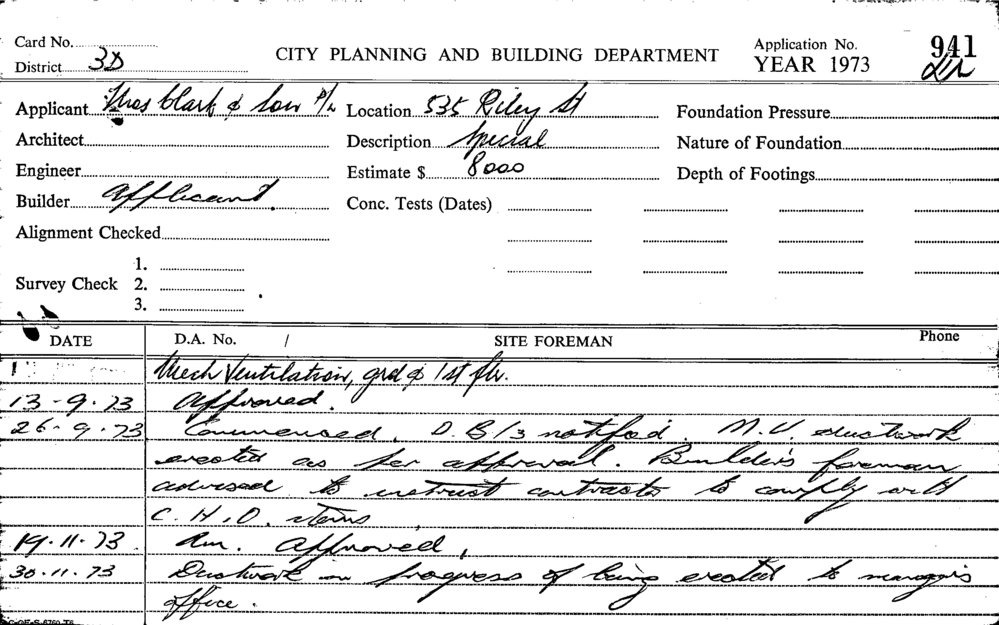 Card No.
CITY PLANNING AND BUILDING DEPARTMENT
Application No. 941
District 3D
YEAR 1973
Applicant Thos Clark & Son P/L Location 535 Riley St Foundation Pressure
Architect Description Special Nature of Foundation
Engineer Estimate $ 8000 Depth of Footings
Builder Applicant. Conc. Tests (Dates)
Alignment Checked
1.
Survey Check 2.
3.
DATE D.A. No. / SITE FOREMAN Phone
Mech Ventilation, grd & 1st flr.
13-9-73 Approved.
26-9-73 Commenced. D.B/3 notified. M.V. ductwork
erected as per approval. Builder's foreman
advised to instruct contractor to comply with
C.H.O. items
19.11.73 Am. Approved,
30.11.73 Ductwork in progress of being erected to manager's
office.